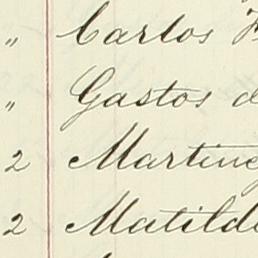 " Carlos
" Gastos d
2 Martine
2 Matild